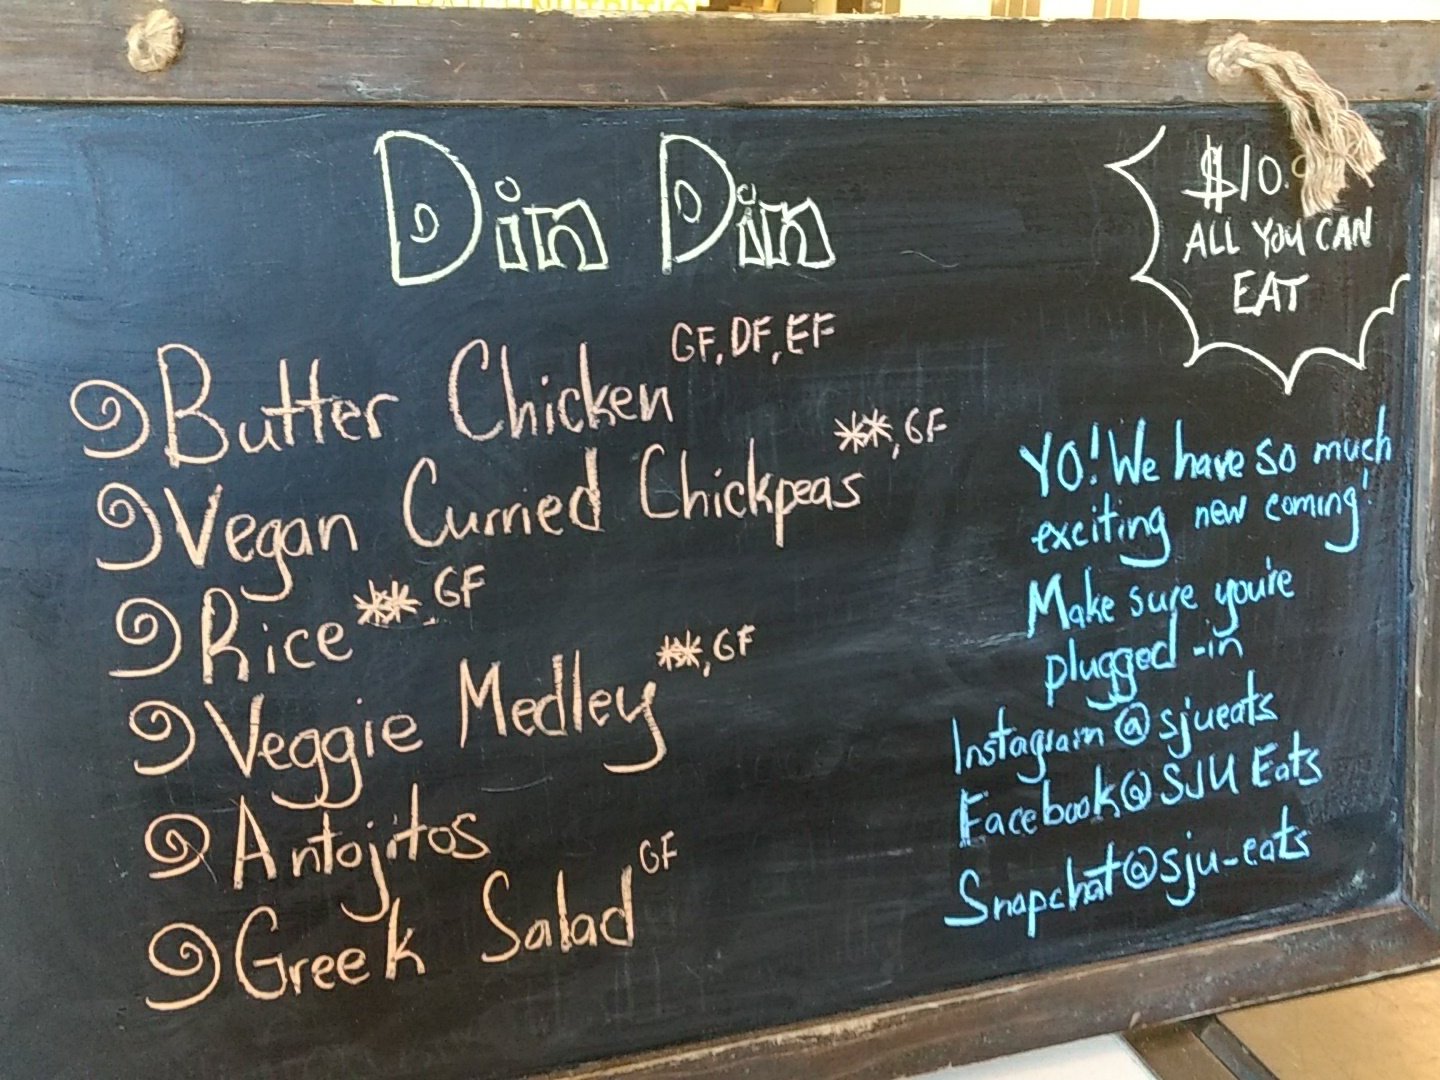 Din Din
$10.
ALL YOU CAN
EAT
Butter Chicken GF, DF, EF
Vegan Curried Chickpeas **, GF
Rice ** GF
Veggie Medley **, GF
Antojitos
Greek Salad GF
YO! We have so much
exciting new coming!
Make sure you're
plugged-in
Instagram@sjueats
Facebook@SJU Eats
Snapchat@sju-eats